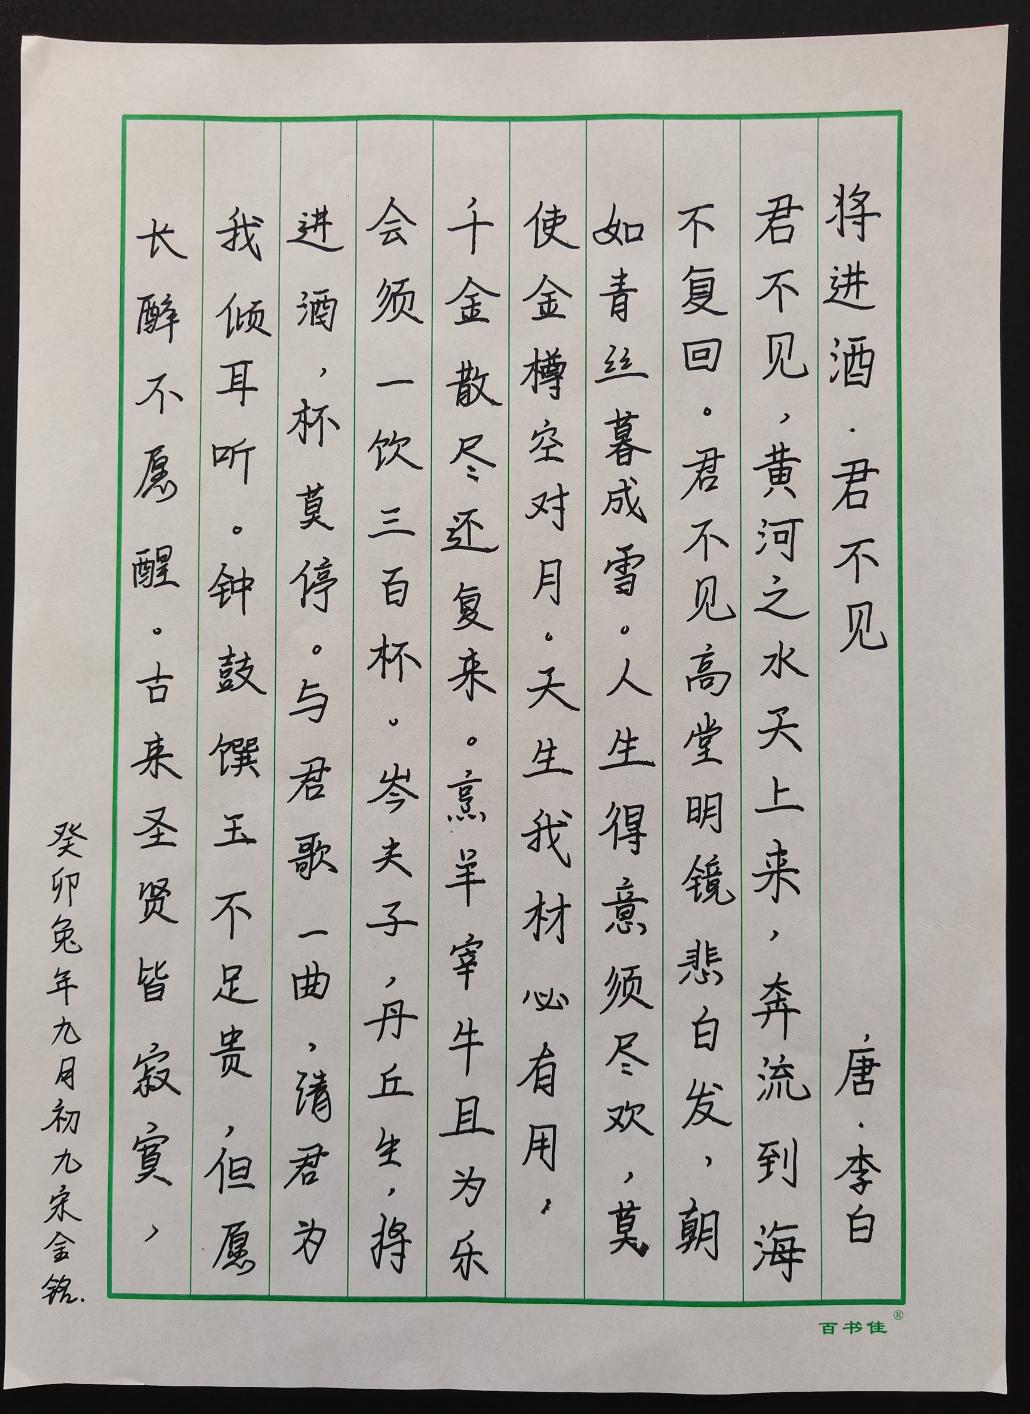 将进酒·君不见 唐·李白
君不见，黄河之水天上来，奔流到海
不复回。君不见高堂明镜悲白发，朝
如青丝暮成雪。人生得意须尽欢，莫
使金樽空对月。天生我材必有用，
千金散尽还复来。烹羊宰牛且为乐
会须一饮三百杯。岑夫子，丹丘生，将
进酒，杯莫停。与君歌一曲，请君为
我倾耳听。钟鼓馔玉不足贵，但愿
长醉不愿醒。古来圣贤皆寂寞，
癸卯兔年九月初九宋金铭.
百书佳®